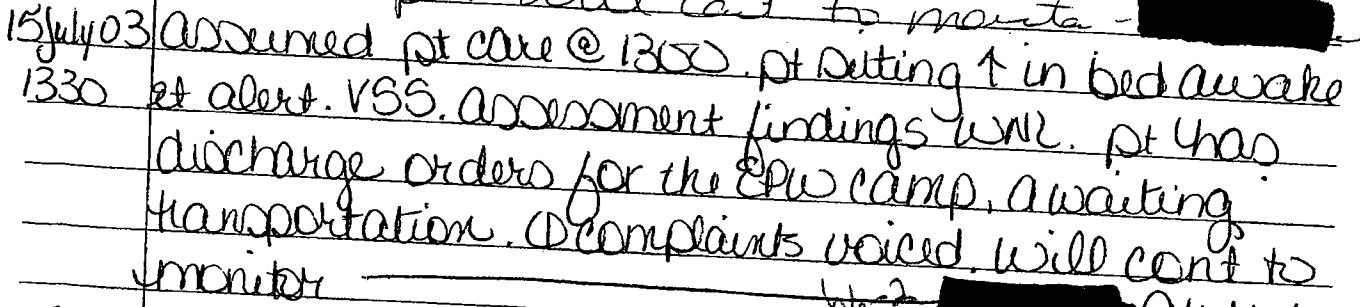 cont to monita -
15July03 assumed pt care @ 1300. pt sitting ↑ in bed awake
1330 et alert. VSS. assessment findings WNL. pt has
discharge orders for the EPW camp, awaiting
transportation. Ø complaints voiced. will con't to
monitor